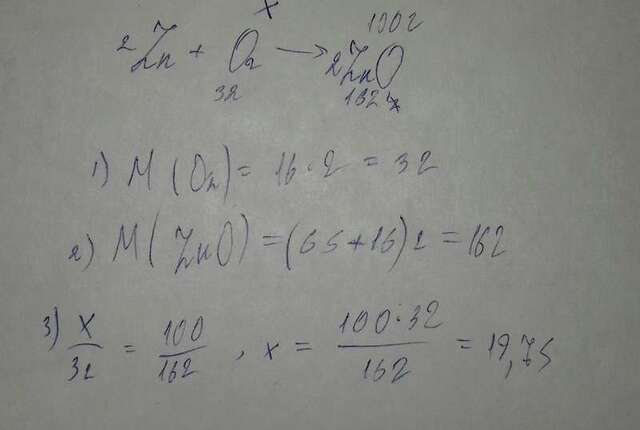 x 100г
2Zn + O₂ → 2ZnO
32 162
1) M(O₂) = 16·2 = 32
2) M(ZnO) = (65+16)2 = 162
3) x/32 = 100/162, x = 100·32/162 = 19,75